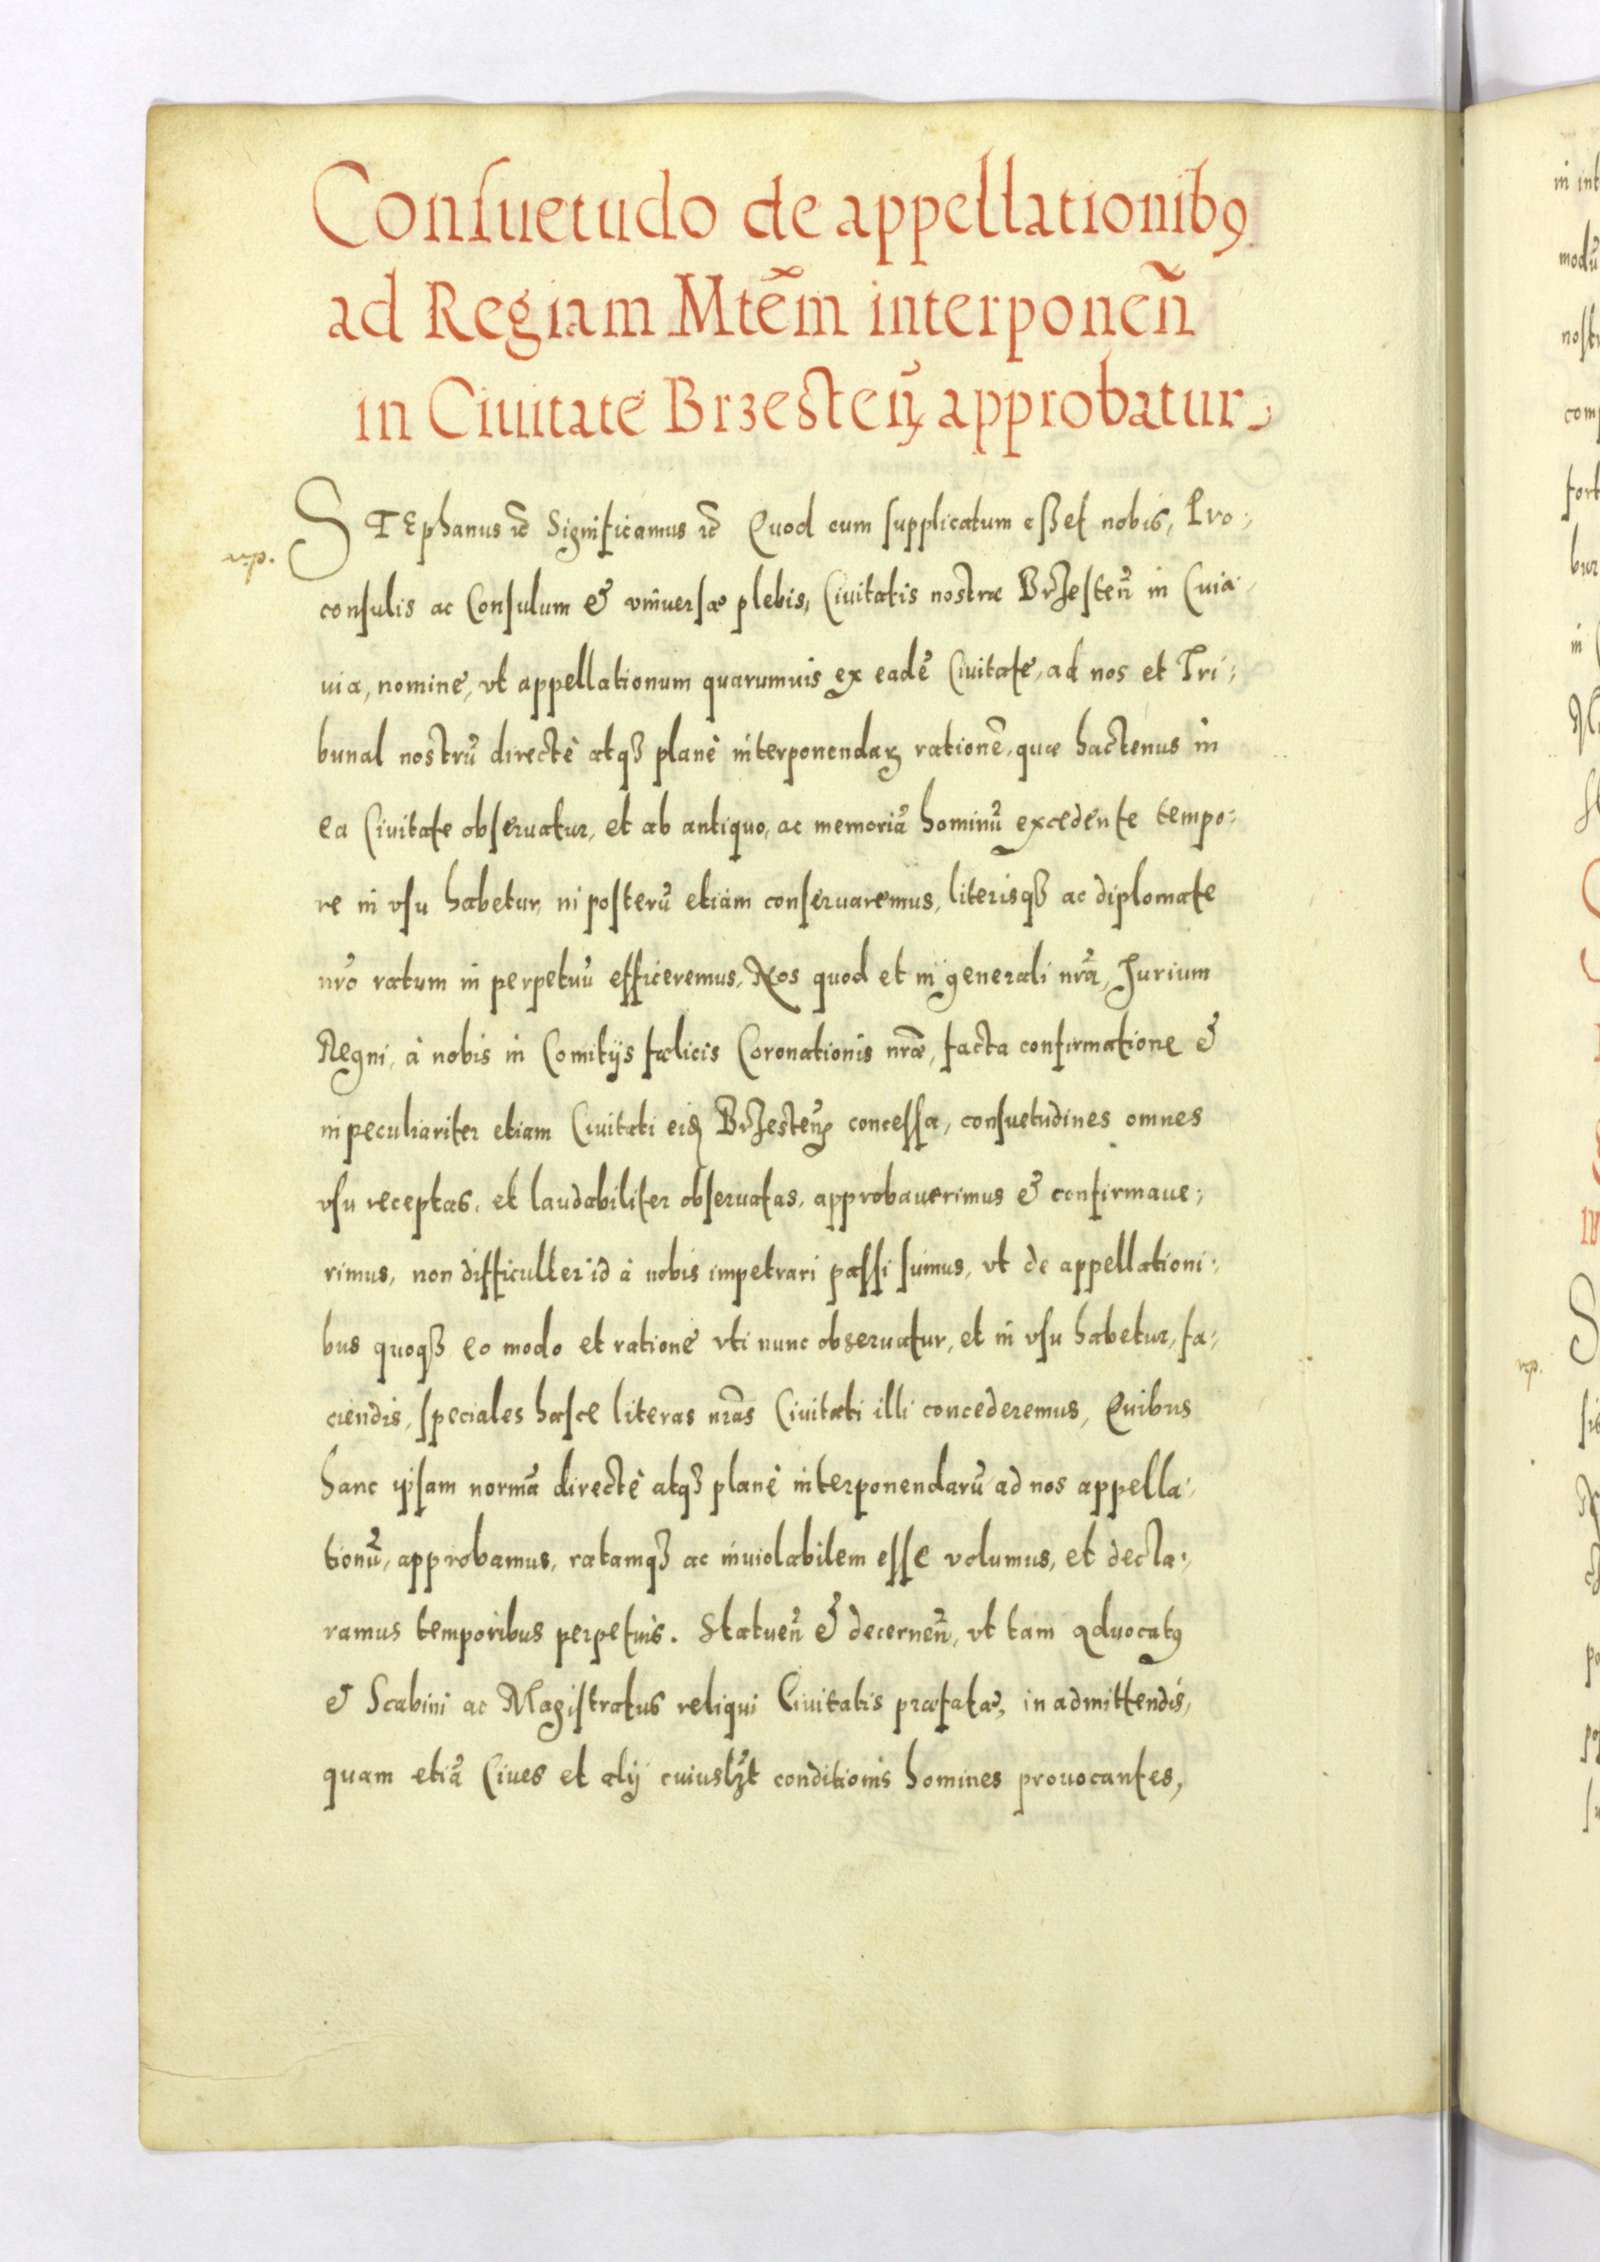 Consuetudo de appellationibꝰ
ad Regiam Mtēm interponeñ
in Ciuitate Brzesteñ approbatur
STEphanus etc Significamus etc Quod cum supplicatum esset nobis, Pro:
consulis ac Consulum & vniuersæ plebis, Ciuitatis nostræ Brzesteñ in Cuia
uia, nomine, vt appellationum quarumuis ex eadē Ciuitate, ad nos et Tri:
bunal nostrū directè atqꝫ planè interponendaꝝ rationē, quæ hactenus in
ea Ciuitate obseruatur, et ab antiquo, ac memoriā hominū excedente tempo:
re in vsu habetur, in posterū etiam conseruaremus, literisqꝫ ac diplomate
nr̄o ratum in perpetuū efficeremus, Nos quod et in generali nr̄a, Jurium
Regni, à nobis in Comitijs fælicis Coronationis nr̄æ, facta confirmatione &
in peculiariter etiam Ciuitati eid Brzesteñ concessa, consuetudines omnes
vsu receptas, et laudabiliter obseruatas, approbauerimus & confirmaue:
rimus, non difficulter id à nobis impetrari passi sumus, vt de appellationi:
bus quoqꝫ eo modo et ratione vti nunc obseruatur, et in vsu habetur, fa:
ciendis, speciales hasce literas nr̄as Ciuitati illi concederemus, Quibus
hanc ipsam normā directè atqꝫ planè interponendarū ad nos appella:
tionū, approbamus, ratamqꝫ ac inuiolabilem esse volumus, et decla:
ramus temporibus perpetuis. Statueñ & decerneñ, vt tam Aduocatꝰ
& Scabini ac Magistratus reliqui Ciuitatis præfatæ, in admittendis,
quam etiā Ciues et alij cuiuslꝫt conditionis homines prouocantes,